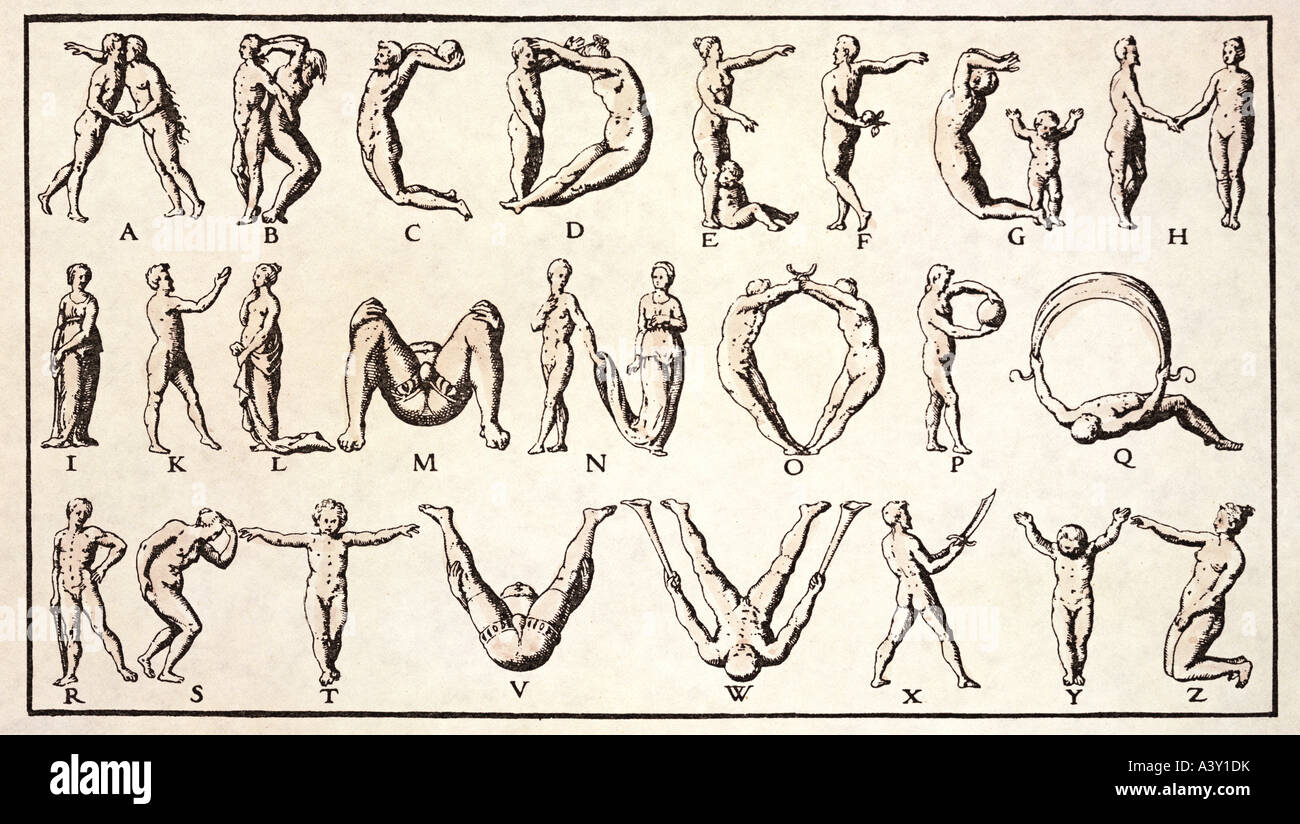 A B C D E F G H
I K L M N O P Q
R S T V W X Y Z
alamy
alamy
Image ID: A3Y1DK
www.alamy.com